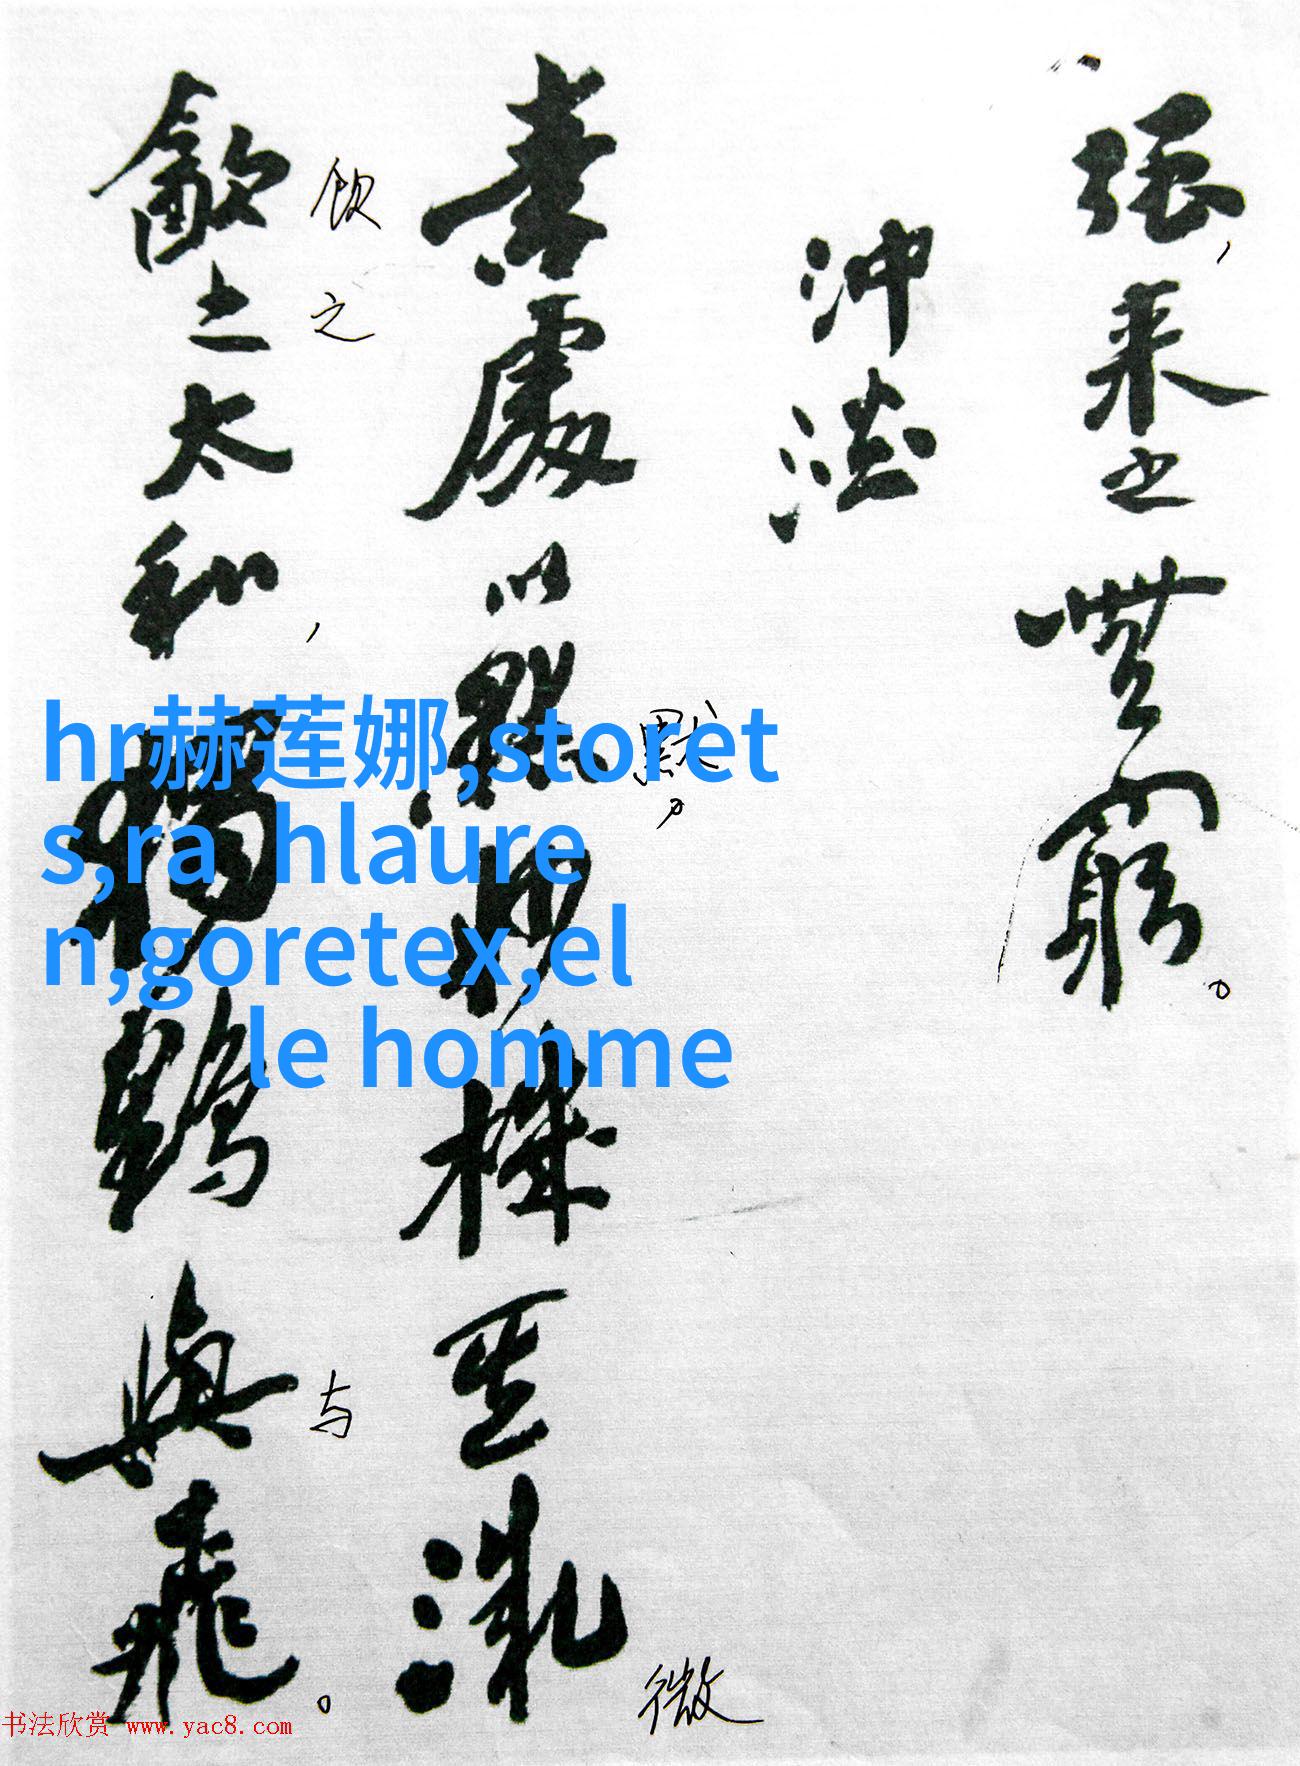 强，来之無窮。
沖淡
素處以默妙機其微
默。
微
飲之太和，獨鶴與飛。
饮
之
与
hr赫莲娜,storet
s,ra hlaure
n,goretex,el
le homme
书法欣赏 www.yac8.com